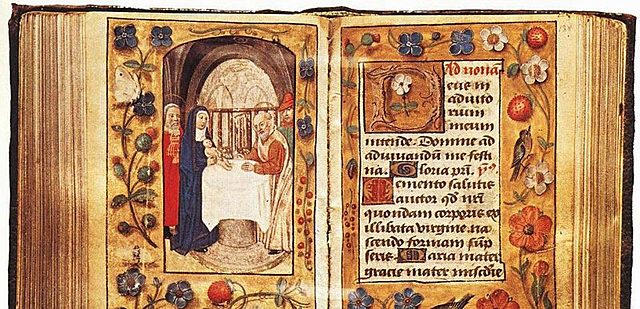 Ad nona
Deus in
adiuto
rium
meum
intende. Domine ad
adiuuandū me festi
na. Gloria pri.
Memento salutis
auctor qd nrī
quondam corporis ex
illibata virgine na
scendo formam sūp
seris. Maria mater
gracie mater miscdie